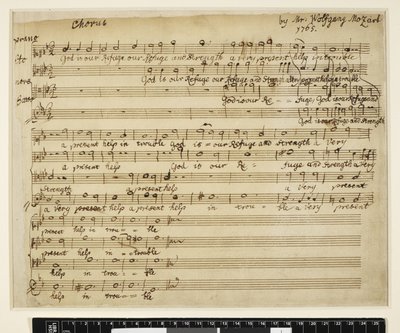 Chorus
by Mr. Wolfgang Mozart
1765.
God is our Refuge our Refuge and Strength a very present help in trouble
God is our Refuge our Refuge and Strength a very present help in trouble
God is our Re - - fuge, God is our Refuge and
God is our Refuge and Strength
a present help in trouble God is = our Refuge and Strength a Very
a present help God is our Re = fuge and Strength a Very
Strength a present help a very present
a very present help a present help in trou = = ble a very present
present help in trou = = ble
present help in = = trouble
help in trou = = ble
help in trou = = = ble